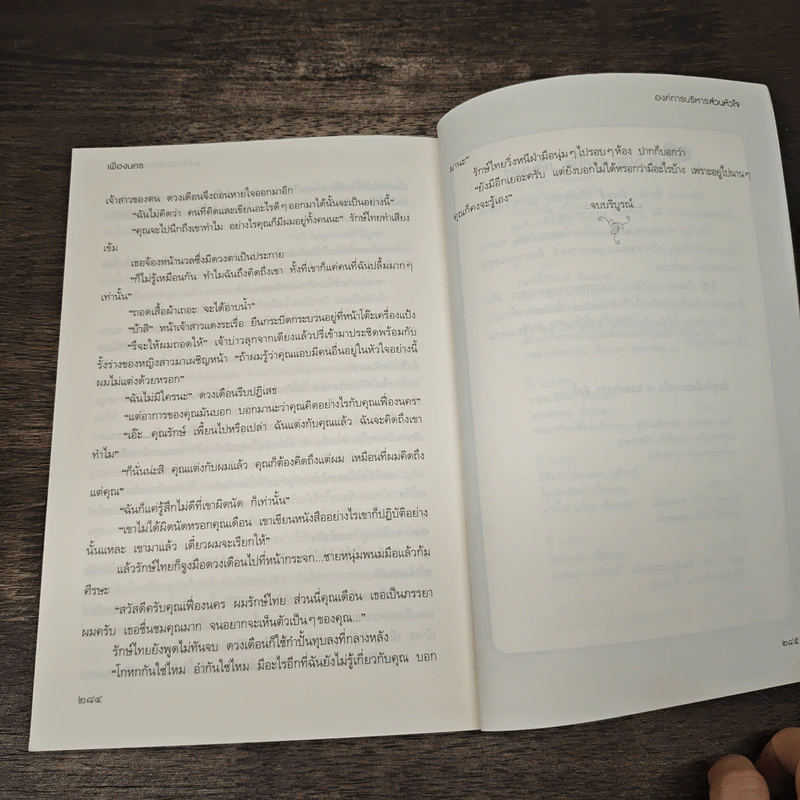 เฟื่องนคร
เจ้าสาวของตน ดวงเดือนจึงถอนหายใจออกมาอีก
“ฉันไม่คิดว่า คนที่คิดและเขียนอะไรดีๆ ออกมาได้นั้นจะเป็นอย่างนี้”
“คุณจะไปนึกถึงเขาทำไม อย่างไรคุณก็มีผมอยู่ทั้งคนนะ” รักษ์ไทยทำเสียง
เข้ม
เธอจ้องหน้านวลซึ่งมีดวงตาเป็นประกาย
“ก็ไม่รู้เหมือนกัน ทำไมฉันถึงคิดถึงเขา ทั้งที่เขาก็แค่คนที่ฉันปลื้มมากๆ
เท่านั้น”
“ถอดเสื้อผ้าเถอะ จะได้อาบน้ำ”
“บ้าสิ” หน้าเจ้าสาวแดงระเรื่อ ยืนกระบิดกระบวนอยู่ที่หน้าโต๊ะเครื่องแป้ง
“รึจะให้ผมถอดให้” เจ้าบ่าวลุกจากเตียงแล้วปรี่เข้ามาประชิดพร้อมกับ
รั้งร่างของหญิงสาวมาเผชิญหน้า “ถ้าผมรู้ว่าคุณแอบมีคนอื่นอยู่ในหัวใจอย่างนี้
ผมไม่แต่งด้วยหรอก”
“ฉันไม่มีใครนะ” ดวงเดือนรีบปฏิเสธ
“แต่อาการของคุณมันบอก บอกมานะว่าคุณคิดอย่างไรกับคุณเฟื่องนคร”
“เอ๊ะ...คุณรักษ์ เพี้ยนไปหรือเปล่า ฉันแต่งกับคุณแล้ว ฉันจะคิดถึงเขา
ทำไม”
“ก็นั่นน่ะสิ คุณแต่งกับผมแล้ว คุณก็ต้องคิดถึงแต่ผม เหมือนที่ผมคิดถึง
แต่คุณ”
“ฉันก็แค่รู้สึกไม่ดีที่เขาผิดนัด ก็เท่านั้น”
“เขาไม่ได้ผิดนัดหรอกคุณเดือน เขาเขียนหนังสืออย่างไรเขาก็ปฏิบัติอย่าง
นั้นแหละ เขามาแล้ว เดี๋ยวผมจะเรียกให้”
แล้วรักษ์ไทยก็จูงมือดวงเดือนไปที่หน้ากระจก...ชายหนุ่มพนมมือแล้วก้ม
ศีรษะ
“สวัสดีครับคุณเฟื่องนคร ผมรักษ์ไทย ส่วนนี่คุณเดือน เธอเป็นภรรยา
ผมครับ เธอชื่นชมคุณมาก จนอยากจะเห็นตัวเป็นๆ ของคุณ...”
รักษ์ไทยยังพูดไม่ทันจบ ดวงเดือนก็ใช้กำปั้นทุบลงที่กลางหลัง
“โกหกกันใช่ไหม อำกันใช่ไหม มีอะไรอีกที่ฉันยังไม่รู้เกี่ยวกับคุณ บอก
๒๘๔
องค์การบริหารส่วนหัวใจ
มานะ”
รักษ์ไทยวิ่งหนีฝ่ามือนุ่มๆ ไปรอบๆ ห้อง ปากก็บอกว่า
“ยังมีอีกเยอะครับ แต่ยังบอกไม่ได้หรอกว่ามีอะไรบ้าง เพราะอยู่ไปนานๆ
คุณก็คงจะรู้เอง”
...จบบริบูรณ์...
๒๘๕